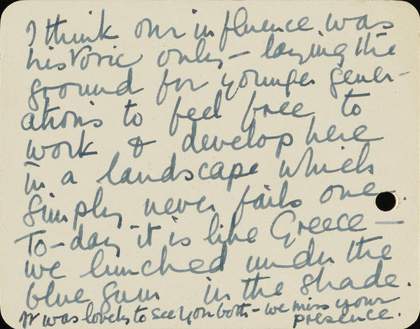 I think our influence was
historic only – laying the
ground for younger gener-
ations to feel free to
work & develop here
in a landscape which
simply never fails one.
To-day it is like Greece –
we lunched under the
blue gum in the shade.
It was lovely to see you both – we miss your
presence.